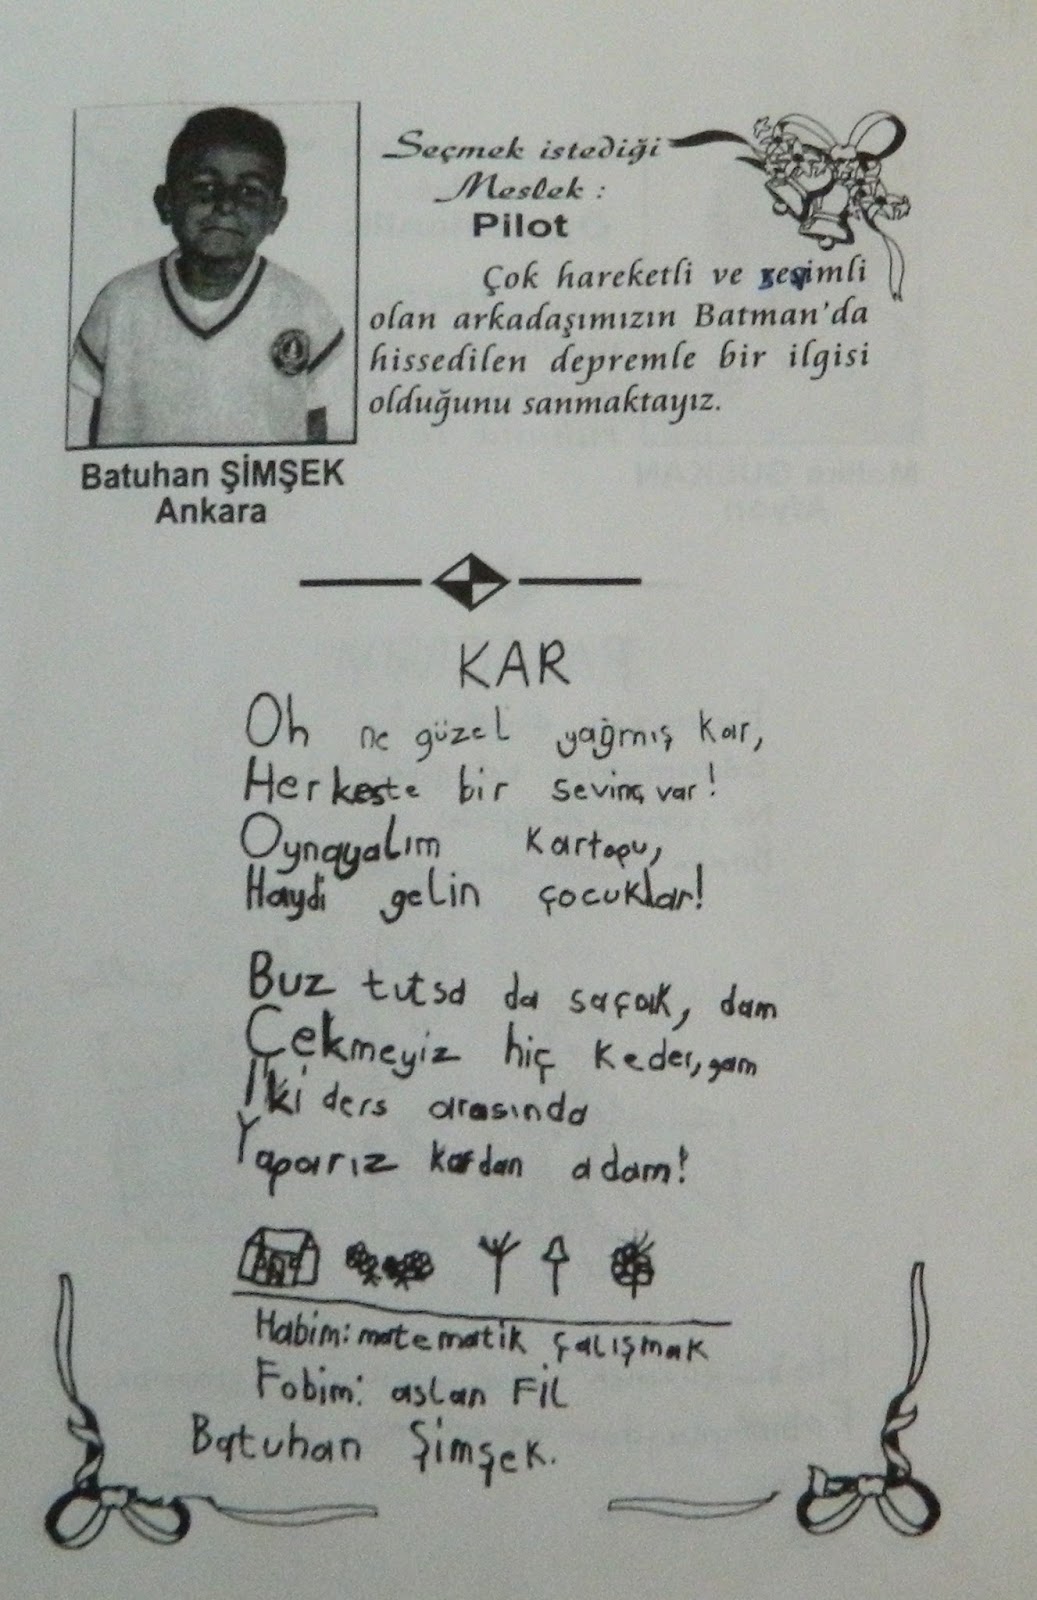 Seçmek istediği
Meslek :
Pilot
Çok hareketli ve sevimli
olan arkadaşımızın Batman'da
hissedilen depremle bir ilgisi
olduğunu sanmaktayız.
Batuhan ŞİMŞEK
Ankara
KAR
Oh ne güzel yağmış kar,
Herkeste bir sevinç var!
Oynayalım kartopu,
Haydi gelin çocuklar!
Buz tutsa da saçak, dam
Çekmeyiz hiç keder, gam
İki ders arasında
Yaparız kardan adam!
Habim: matematik çalışmak
Fobim: aslan Fil
Batuhan Şimşek.